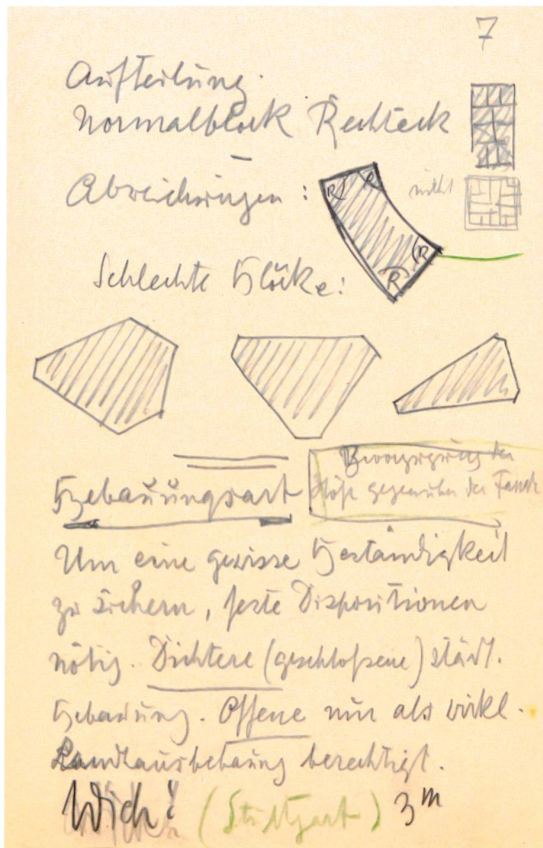 7
Aufteilung.
Normalblock Rechteck
Abweichungen:
R R R R
nicht
Schlechte Blöcke:
Bebauungsart
Bevorzugung der
Höfe gegenüber der
Um eine gewisse Beständigkeit
zu sichern, feste Dispositionen
nötig. Dichtere (geschloßene) städt.
Bebauung. Offene nur als wirkl.
Landhausbebauung berechtigt.
Wich! (Stuttgart) 3m